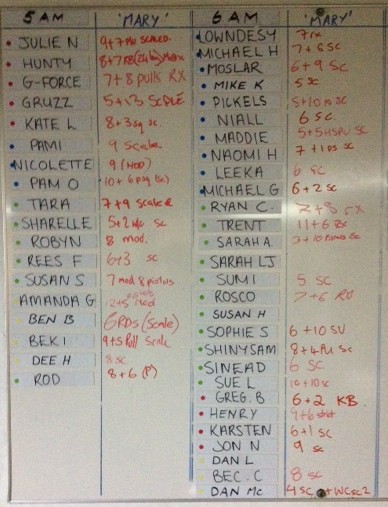 5 AM 'MARY'
JULIE N 9+7 PU SCALED
HUNTY 8+7
G-FORCE 7+8 pulls RX
GRUZZ 5+13 SCALE
KATE L 8+3 sq sc.
PAMI 9 Scale
NICOLETTE 9 (MOD)
PAM O 10+6 (sc)
TARA 7+9 scaled
SHARELLE 5+2 sc
ROBYN 8 mod.
REES F 6+3 sc
SUSAN S 7 mod 8 pistols
AMANDA G 12+5 mod
BEN B 6RDs (Scale)
BEK I 9+5 Pull Scale
DEE H 8 sc
ROD 8+6 (P)
6 AM 'MARY'
LOWNDESY 7rx
MICHAEL H 7+6 SC
MOSLAR 6+9 SC
MIKE K 5 SC
PICKELS 5+10 sc
NIALL 6 SC
MADDIE 5+5HSPU SC
NAOMI H 7+1 ps sc
LEEKA 6 SC
MICHAEL G 6+2 sc
RYAN C. 7+8 rx
TRENT 11+6 Rx
SARAH A
SARAH LJ
SUMI 5 SC
ROSCO 7+6
SUSAN H
SOPHIE S 6+10 SU
SHINYSAM 8+4 PU SC
SINEAD 6 SC
SUE L 10+10 sc
GREG. B 6+2 KB
HENRY 9+6
KARSTEN 6+1 SC
JON N 9 sc
DAN L
BEC. C 8 sc
DAN Mc 4 SC + WCSC2